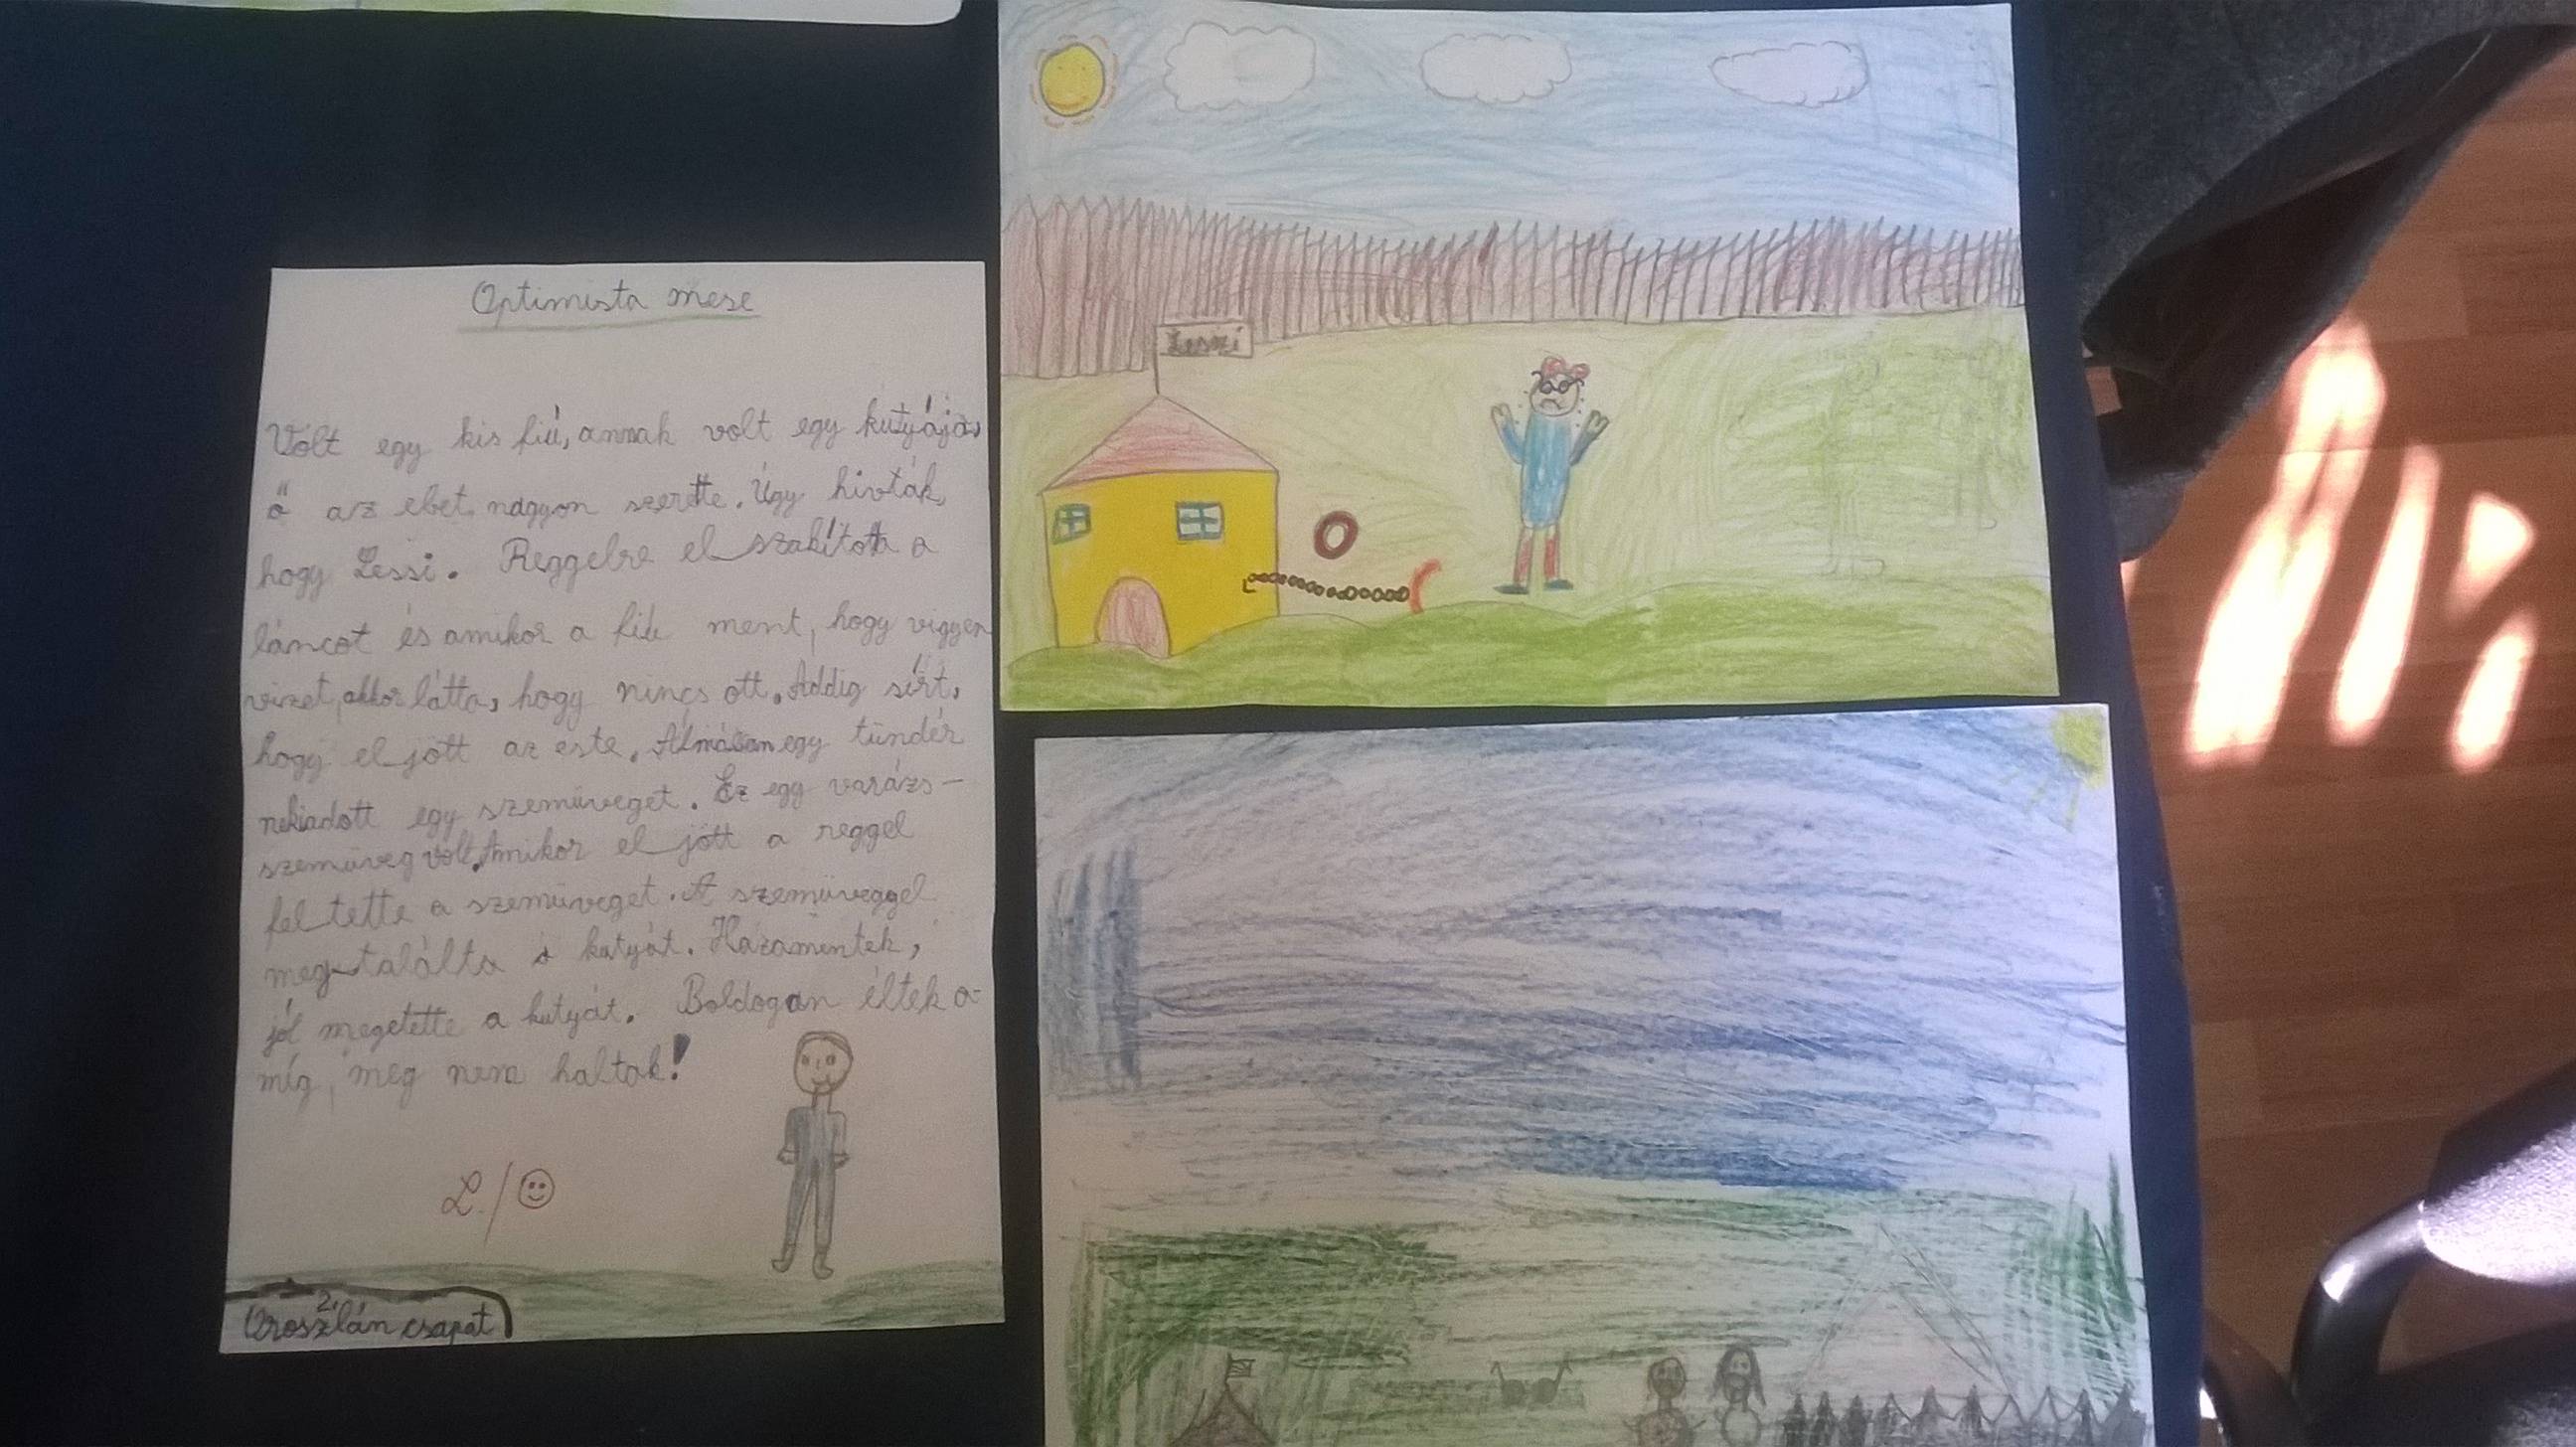 Optimista mese
Volt egy kis fiú, annak volt egy kutyája,
ő az ebet nagyon szerette. Úgy hívták,
hogy Lessi. Reggelre el szakította a
láncot és amikor a fiú ment, hogy vigyen
vizet, akkor látta, hogy nincs ott. Addig sírt,
hogy el jött az este. Álmában egy tündér
nekiadott egy szemüveget. Ez egy varázs-
szemüveg volt. Amikor el jött a reggel
fel tette a szemüveget. A szemüveggel
meg találta a kutyát. Hazamentek,
jól megetette a kutyát. Boldogan éltek a-
míg, meg nem haltak!
L./
2.
Oroszlán csapat
Leszi